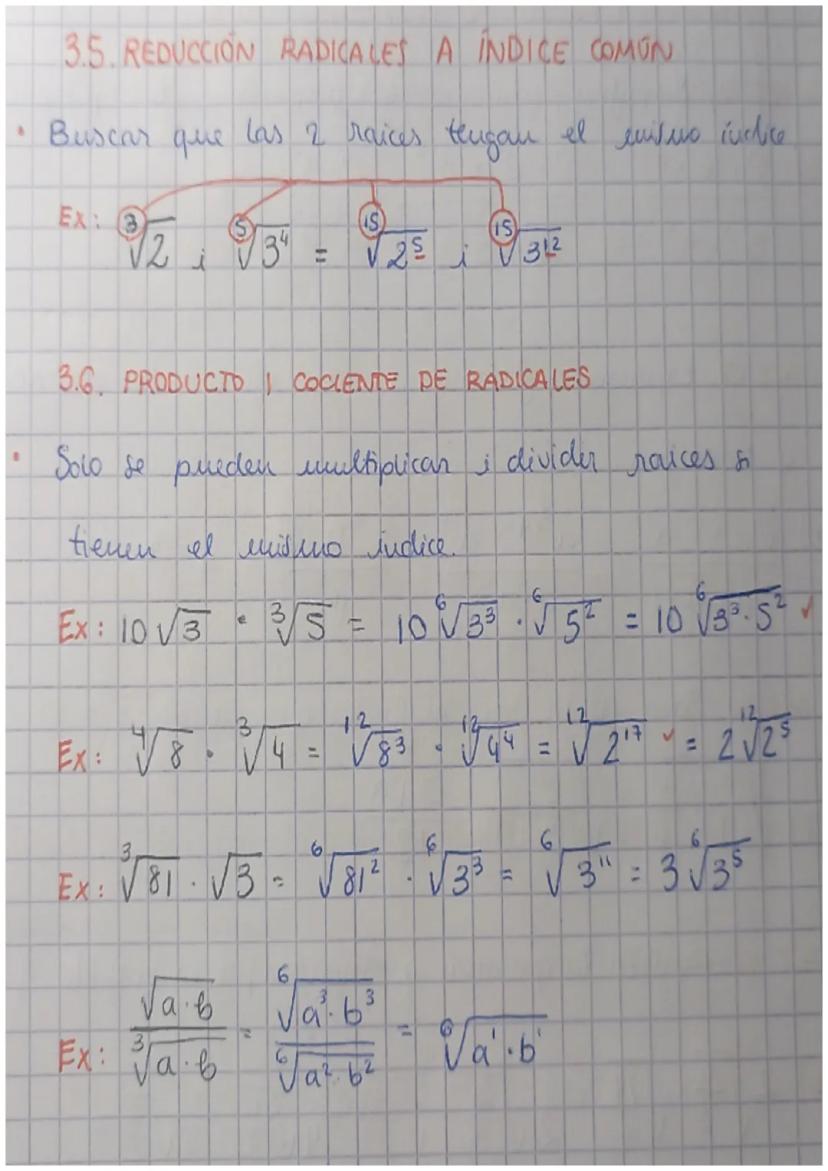 3.5. REDUCCIÓN RADICALES A ÍNDICE COMÚN
• Buscar que las 2 raices tengan el mismo índice
Ex: ∛2 i ⁵√3⁴ = ¹⁵√2⁵ i ¹⁵√3¹²
3.6. PRODUCTO I COCIENTE DE RADICALES
• Solo se pueden multiplicar i dividir raices si
tienen el mismo índice.
Ex: 10√3 · ³√5 = 10 ⁶√3³ · ⁶√5² = 10 ⁶√3³·5² ✓
Ex: ⁴√8 · ³√4 = ¹²√8³ · ¹²√4⁴ = ¹²√2¹⁷ ✓ = 2 ¹²√2⁵
Ex: ³√81 · √3 = ⁶√81² · ⁶√3³ = ⁶√3¹¹ = 3 ⁶√3⁵
Ex: √a·b / ³√a·b = ⁶√a³·b³ / ⁶√a²·b² = ⁶√a¹·b¹